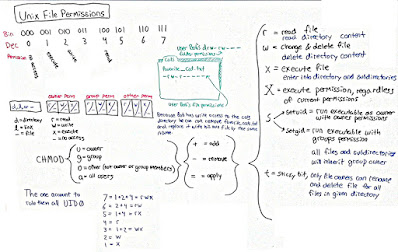 Unix File Permissions
Bin 000 001 010 011 100 101 110 111
Dec 0 1 2 3 4 5 6 7
no access
execute
write
read
User Bob's
cats
favorite_cat.txt
User Bob's file permissions
owner perm group perm other perm
d = directory
l = link
- = file
r = read
w = write
x = execute
- = no access
Because Bob has write access to the cats
directory he can
and replace it with his own file by the same
name
CHMOD
u = owner
g = group
o = other (not owner or group members)
a = all users
+ = add
- = remove
= = apply
The one account to
rule them all UID 0
7 = 1+2+4 = rwx
6 = 2+4 = rw
5 = 1+4 = rx
4 = r
3 = 1+2 = wx
2 = w
1 = x
r = read file
read directory content
w = change & delete file
delete directory content
x = execute file
enter into directory and subdirectories
X = execute permission, regardless
of current permissions
s
setuid = run executable as owner
with owner permissions
setgid = run executable with
groups permission
all files and subdirectories
will inherit group owner
t = sticky bit, only file owners can rename
and delete file for all
files in given directory